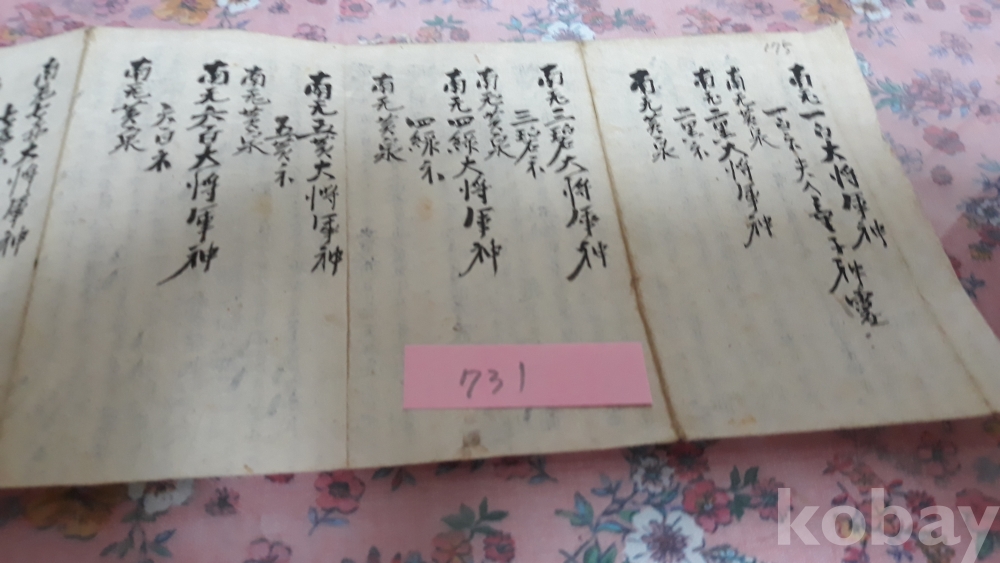 175
南无一白大将軍神
一白ホ夫人童子神
南无黄泉
南无二黒大将軍神
二黒ホ
南无黄泉
南无三碧大将軍神
三碧ホ
南无黄泉
南无四緑大将軍神
四緑ホ
南无黄泉
南无五黄大将軍神
五黄ホ
南无黄泉
南无六白大将軍神
六白ホ
南无黄泉
南无七赤大将軍神
731
kobay